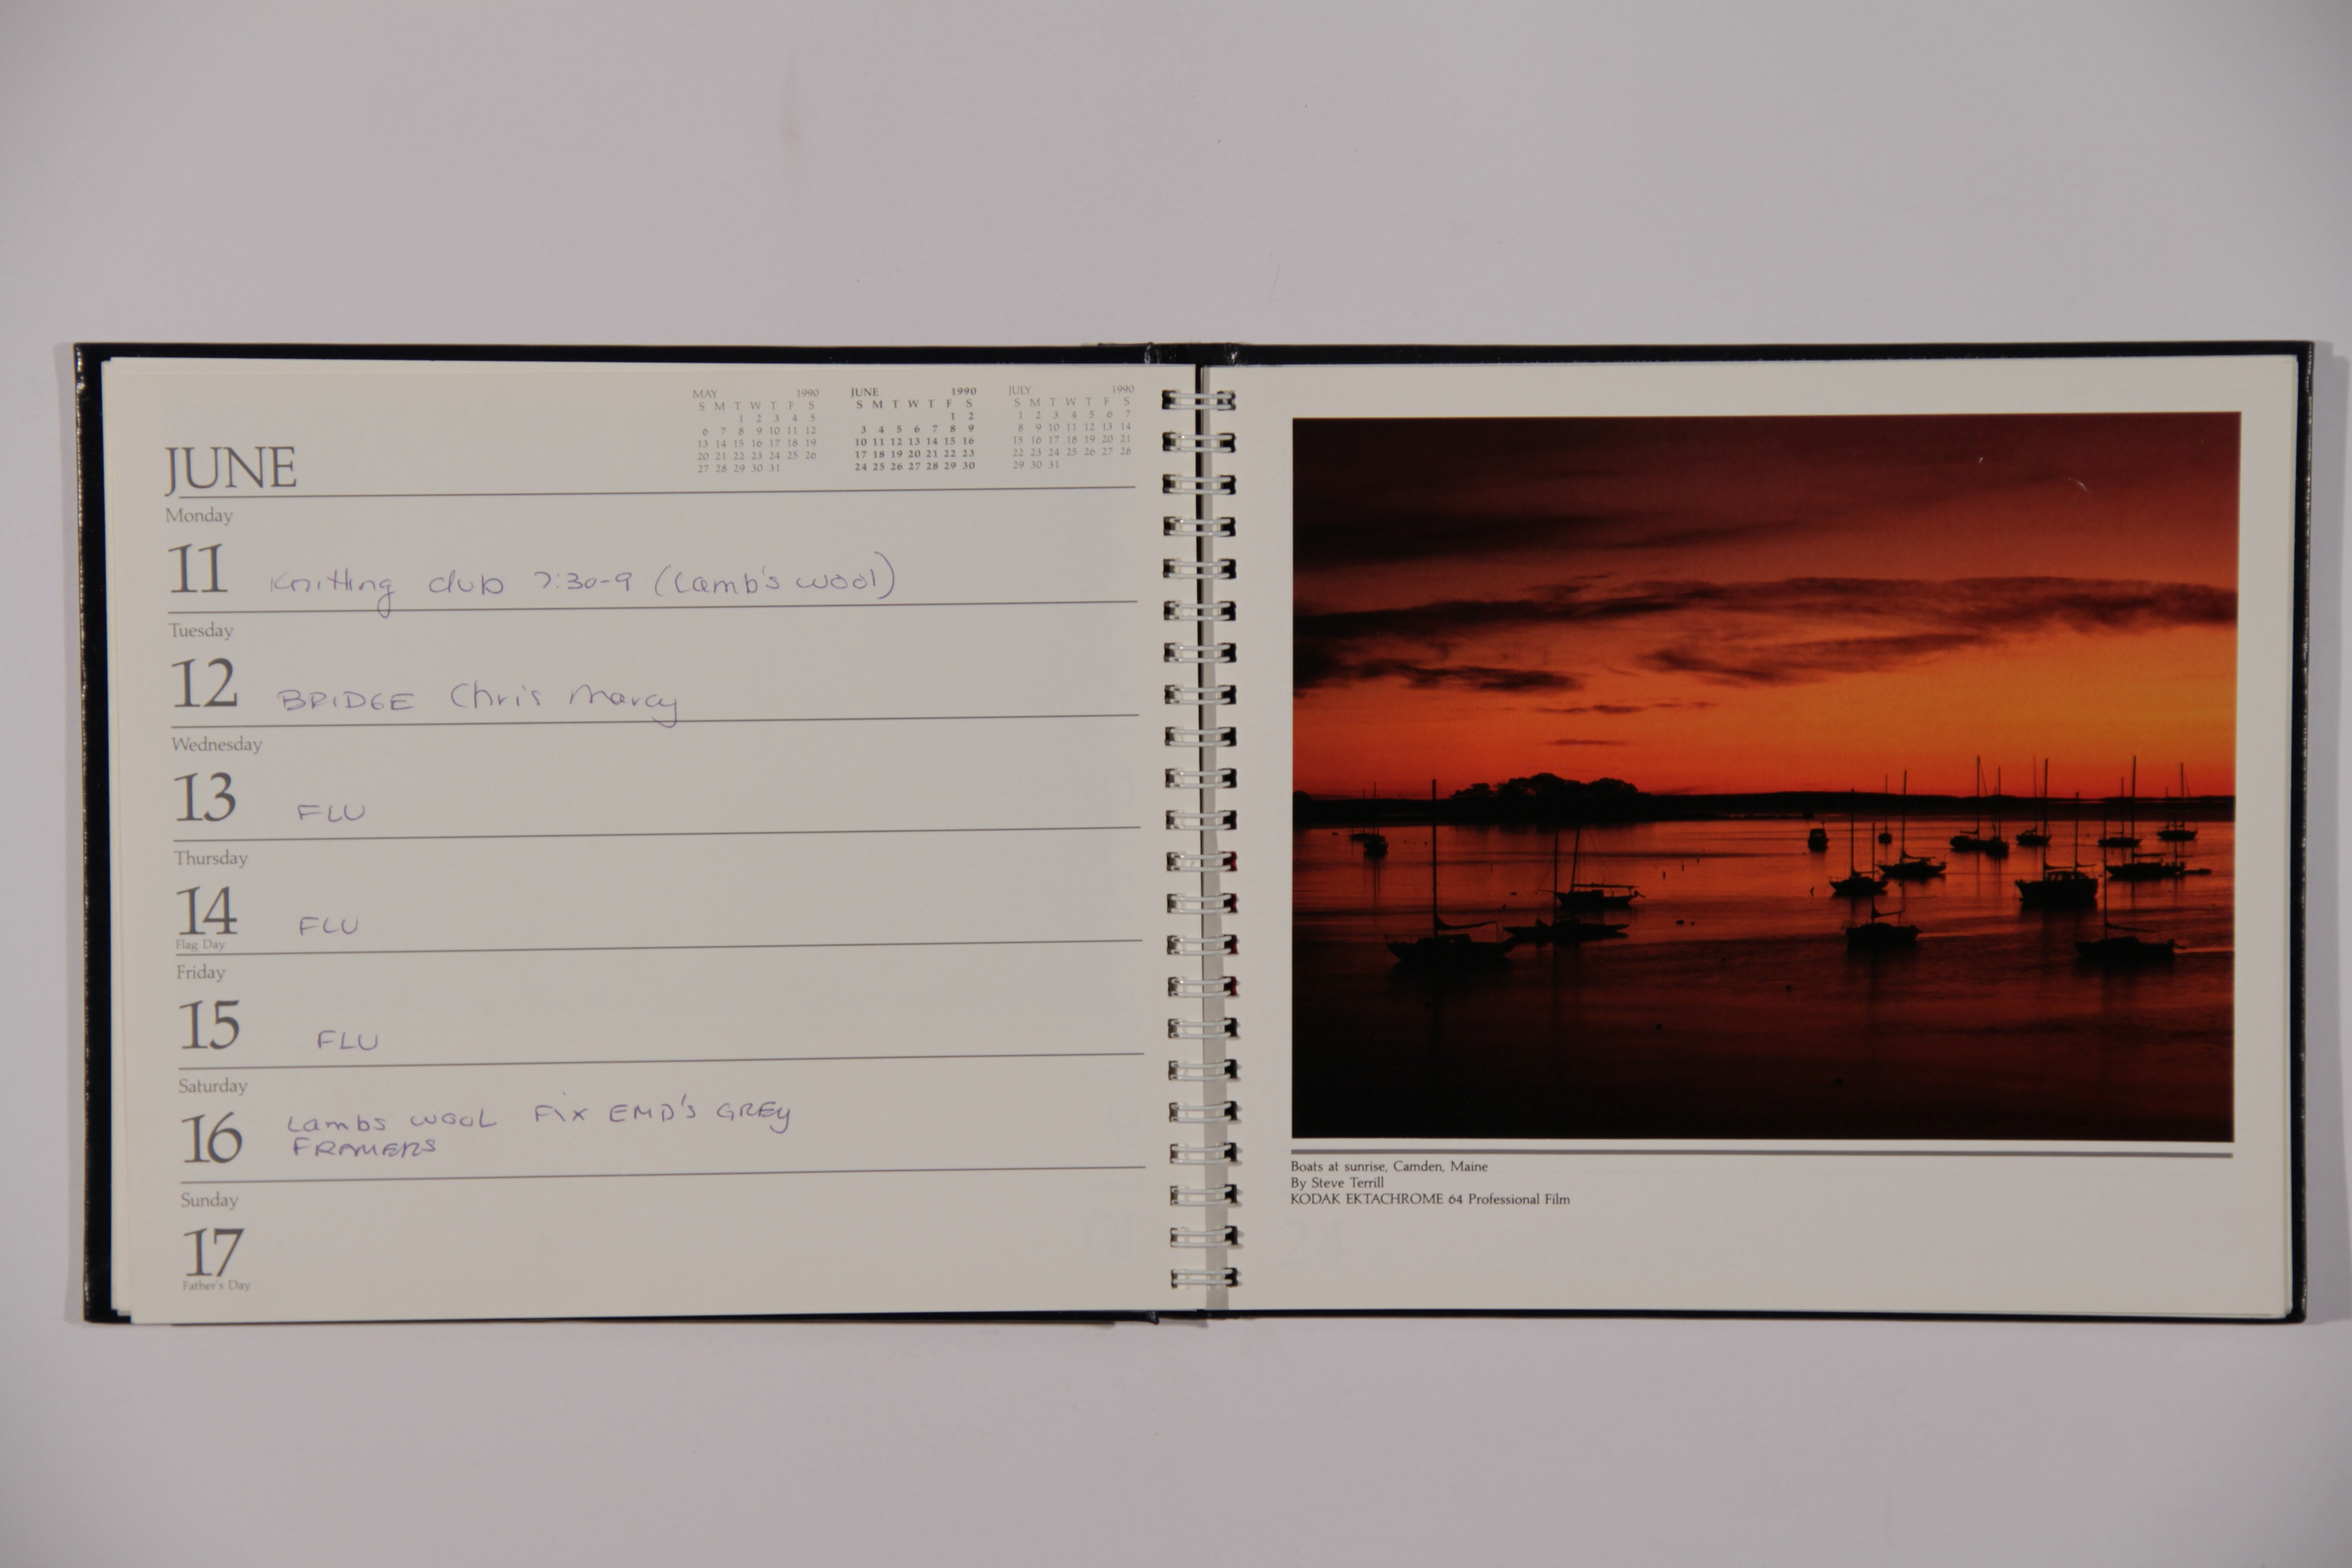 MAY 1990
S M T W T F S
1 2 3 4 5
6 7 8 9 10 11 12
13 14 15 16 17 18 19
20 21 22 23 24 25 26
27 28 29 30 31
JUNE 1990
S M T W T F S
1 2
3 4 5 6 7 8 9
10 11 12 13 14 15 16
17 18 19 20 21 22 23
24 25 26 27 28 29 30
JULY 1990
S M T W T F S
1 2 3 4 5 6 7
8 9 10 11 12 13 14
15 16 17 18 19 20 21
22 23 24 25 26 27 28
29 30 31
JUNE
Monday
11 Knitting club 7:30-9 (Lamb's wool)
Tuesday
12 BRIDGE Chris Marcy
Wednesday
13 FLU
Thursday
14 FLU
Flag Day
Friday
15 FLU
Saturday
16 Lambs WOOL FIX EMD'S GREY
FRAMERS
Sunday
17
Father's Day
Boats at sunrise, Camden, Maine
By Steve Terrill
KODAK EKTACHROME 64 Professional Film